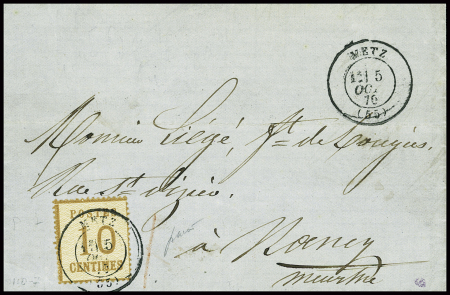 METZ
5
OCT
70
(55)
Monsieur Liégé, ft de Bougies.
Rue St dizier
à Nancy
Meurthe
POSTES
10
CENTIMES
METZ
5
55)